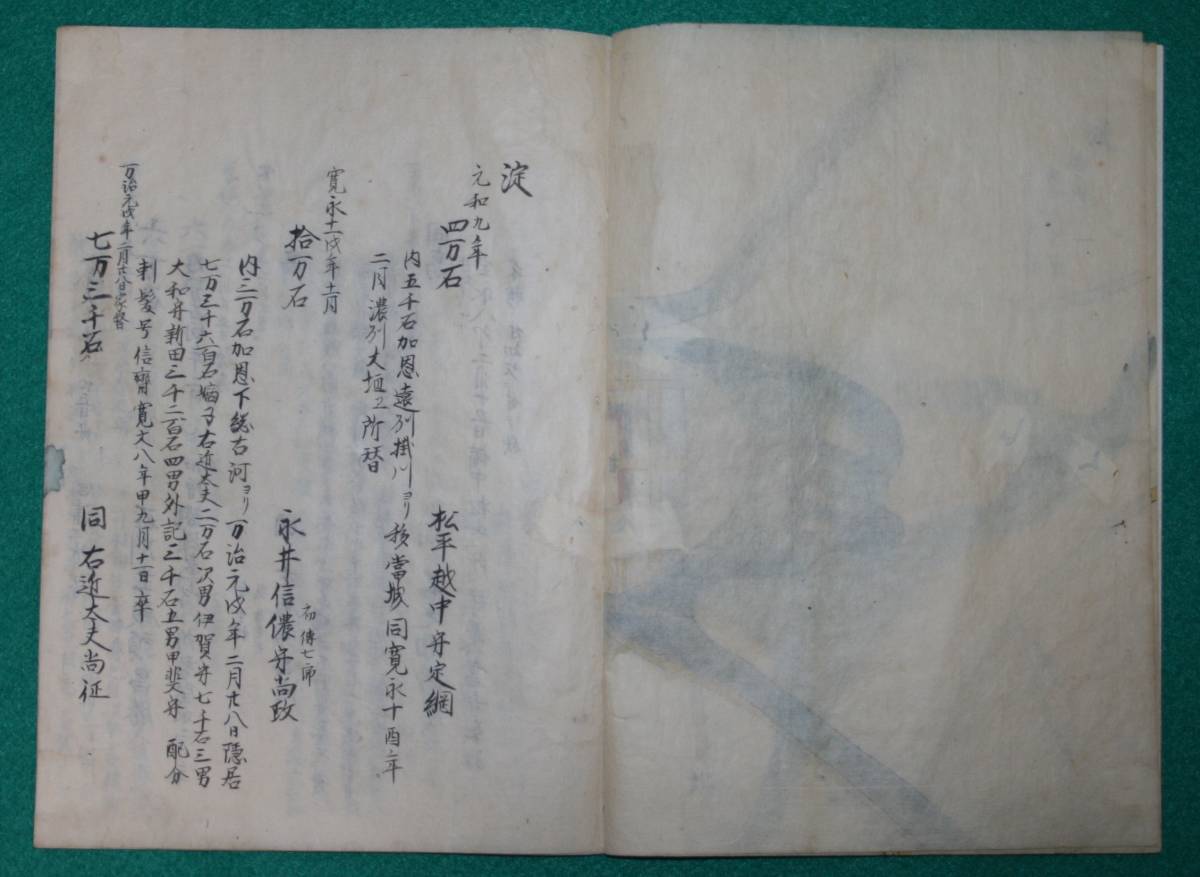 淀
元和九年
四万石
松平越中守定綱
内五千石加恩遠列掛川ヨリ移當城同寛永十酉年
二月濃列大垣エ所替
寛永十一戌年十二月
拾万石
初傳七郎
永井信儂守尚政
内三万石加恩下総古河ヨリ万治元戌年二月廿八日隠居
七万三千六百石嫡子右近太夫二万石次男伊賀守七千石三男
大和守新田三千二百石四男外記三千石五男甲斐守配分
剃髪号信齊寛文八年甲九月十一日卒
万治元戌年二月廿八日家督
七万三千石
同右近太夫尚征